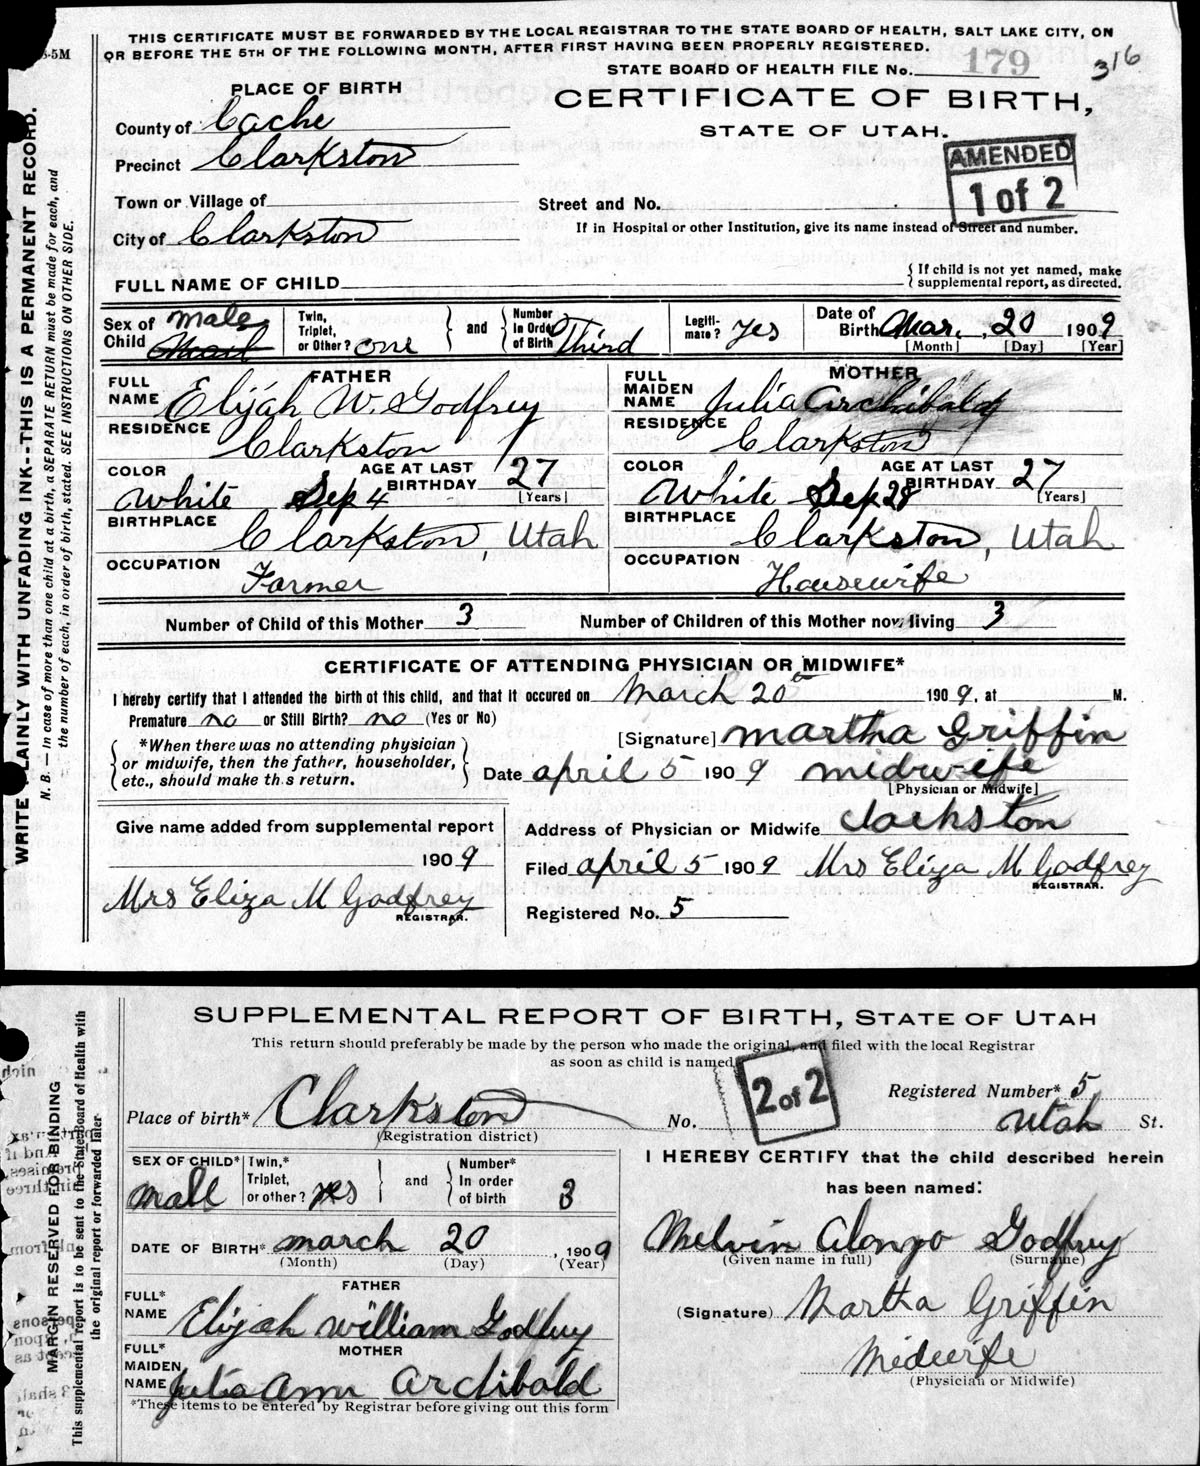 THIS CERTIFICATE MUST BE FORWARDED BY THE LOCAL REGISTRAR TO THE STATE BOARD OF HEALTH, SALT LAKE CITY, ON
OR BEFORE THE 5TH OF THE FOLLOWING MONTH, AFTER FIRST HAVING BEEN PROPERLY REGISTERED.
STATE BOARD OF HEALTH FILE No. 179 316
PLACE OF BIRTH
CERTIFICATE OF BIRTH,
STATE OF UTAH.
County of Cache
Precinct Clarkston
AMENDED
1 of 2
Town or Village of
Street and No.
City of Clarkston
If in Hospital or other Institution, give its name instead of Street and number.
FULL NAME OF CHILD
{If child is not yet named, make
supplemental report, as directed.
Sex of Child male Mail
Twin, Triplet, or Other? one } and { Number In Order of Birth Third
Legitimate? Yes
Date of Birth Mar. , 20 1909
[Month] [Day] [Year]
FATHER
FULL NAME Elijah W. Godfrey
RESIDENCE Clarkston
COLOR White Sep 4
AGE AT LAST BIRTHDAY 27
[Years]
BIRTHPLACE Clarkston, Utah
OCCUPATION Farmer
MOTHER
FULL MAIDEN NAME Julia Archibald
RESIDENCE Clarkston
COLOR White Sep 28
AGE AT LAST BIRTHDAY 27
[Years]
BIRTHPLACE Clarkston, Utah
OCCUPATION Housewife
Number of Child of this Mother 3
Number of Children of this Mother now living 3
CERTIFICATE OF ATTENDING PHYSICIAN OR MIDWIFE*
I hereby certify that I attended the birth of this child, and that it occured on March 20th 1909, at M.
Premature no or Still Birth? no (Yes or No)
{*When there was no attending physician
or midwife, then the father, householder,
etc., should make this return.}
[Signature] Martha Griffin
Date april 5 1909 midwife
[Physician or Midwife]
Give name added from supplemental report
1909
Mrs Eliza M Godfrey
REGISTRAR.
Address of Physician or Midwife Clarkston
Filed april 5 1909 Mrs Eliza M Godfrey
REGISTRAR.
Registered No. 5
WRITE PLAINLY WITH UNFADING INK--THIS IS A PERMANENT RECORD.
N. B. — In case of more than one child at a birth, a SEPARATE RETURN must be made for each, and
the number of each, in order of birth, stated. SEE INSTRUCTIONS ON OTHER SIDE.
SUPPLEMENTAL REPORT OF BIRTH, STATE OF UTAH
This return should preferably be made by the person who made the original, and filed with the local Registrar
as soon as child is named.
2 of 2
Registered Number* 5
Place of birth* Clarkston No. Utah St.
(Registration district)
SEX OF CHILD* Male
Twin,* Triplet, or other? yes } and { Number* In order of birth 3
DATE OF BIRTH* March 20, 1909
(Month) (Day) (Year)
FATHER
FULL* NAME Elijah William Godfrey
MOTHER
FULL* MAIDEN NAME Julia Ann Archibald
*These items to be entered by Registrar before giving out this form
I HEREBY CERTIFY that the child described herein
has been named:
Melvin Alonzo Godfrey
(Given name in full) (Surname)
(Signature) Martha Griffin
Midwife
(Physician or Midwife)
MARGIN RESERVED FOR BINDING
This supplemental report is to be sent to the State Board of Health with
the original report or forwarded later